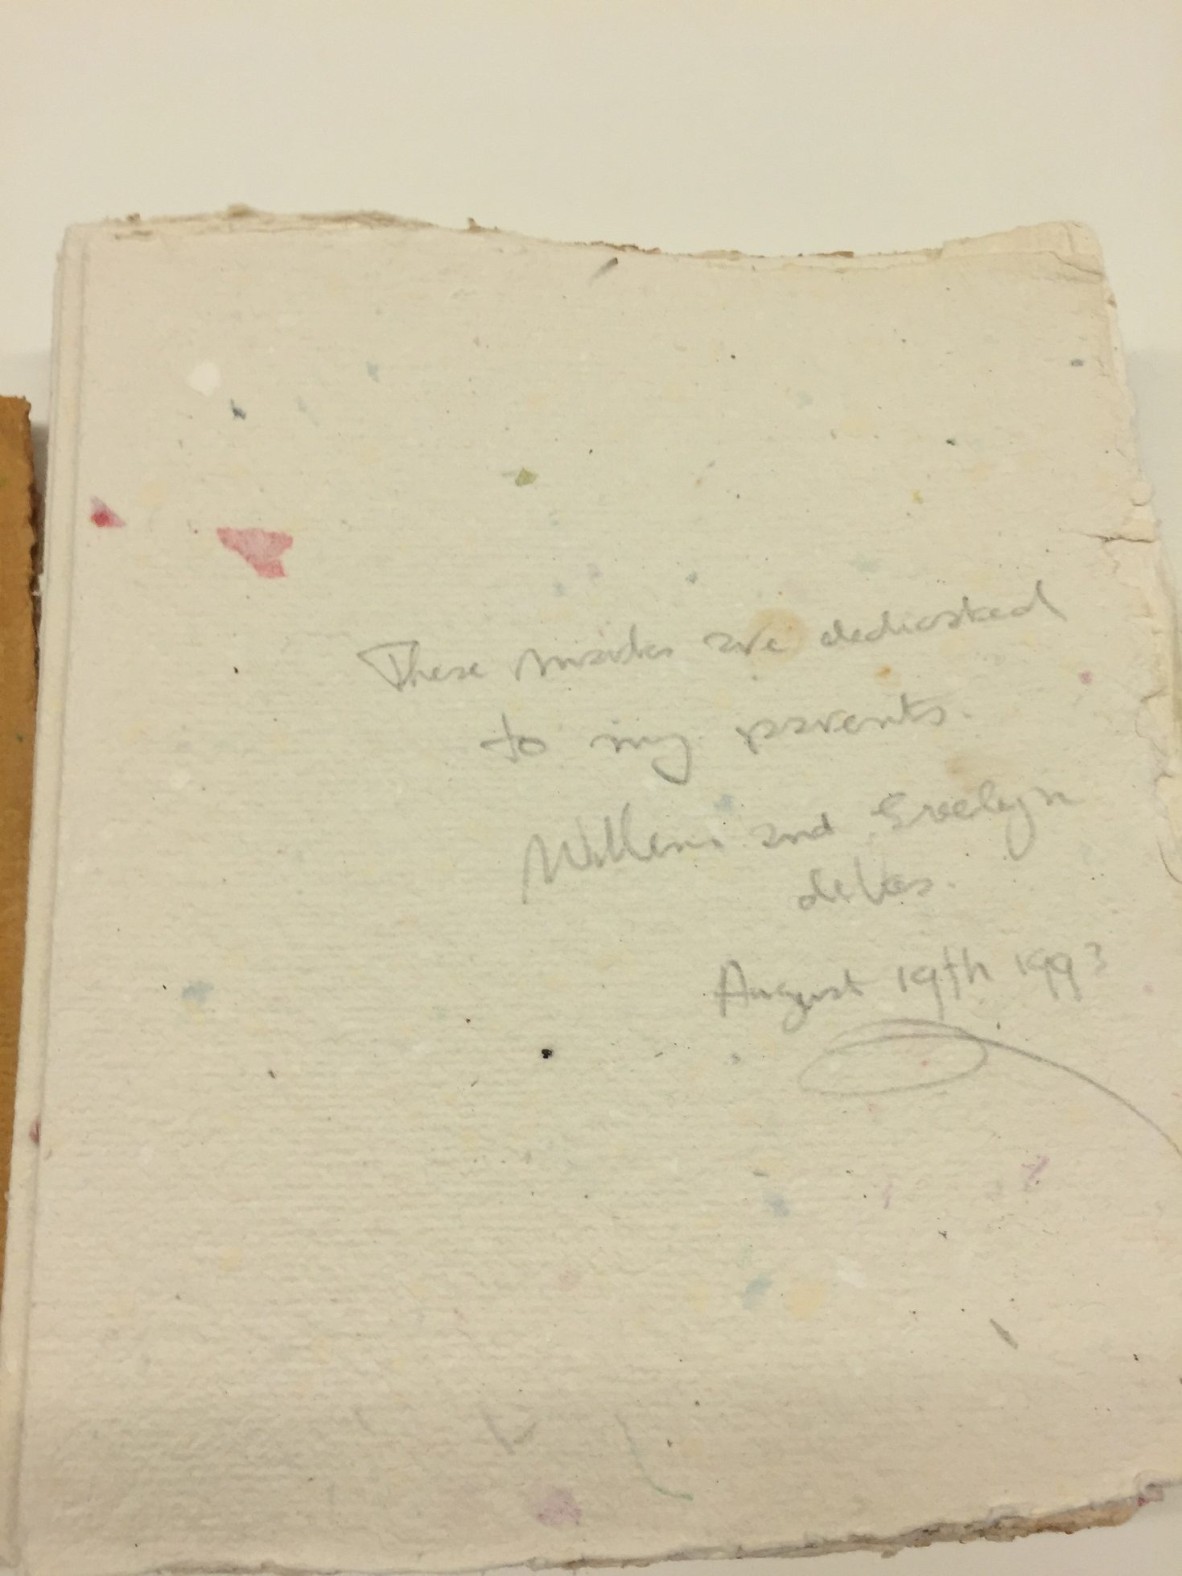 These marks are dedicated
to my parents.
Willem and Evelyn
deVos.
August 19th 1993